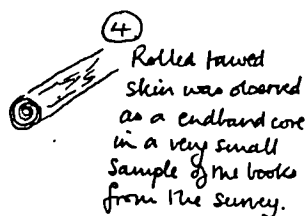 4
Rolled tawed
skin was observed
as a endband core
in a very small
sample of the books
from the survey.